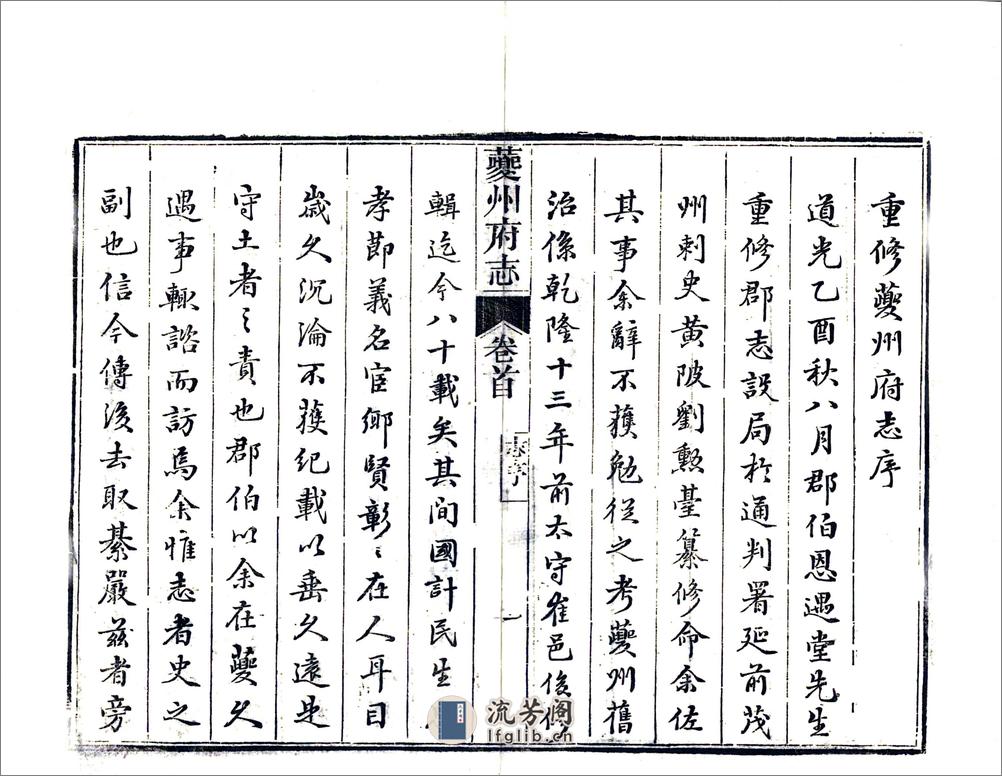 重修夔州府志序
道光乙酉秋八月郡伯恩遇堂先生
重修郡志設局於通判署延前茂
州刺史黃陂劉勳臺纂修命余佐
其事余辭不獲勉從之考夔州舊
治係乾隆十三年前太守崔邑俊修
夔州府志
卷首
志序
一
輯迄今八十載矣其间國計民生
孝節義名宦鄉賢彰〻在人耳目
歲久沉淪不獲紀載以垂久遠是
守土者之責也郡伯以余在夔久
遇事輒諮而訪焉余惟志者史之
副也信今傳後去取綦嚴茲者旁
流芳阁
lfglib.cn